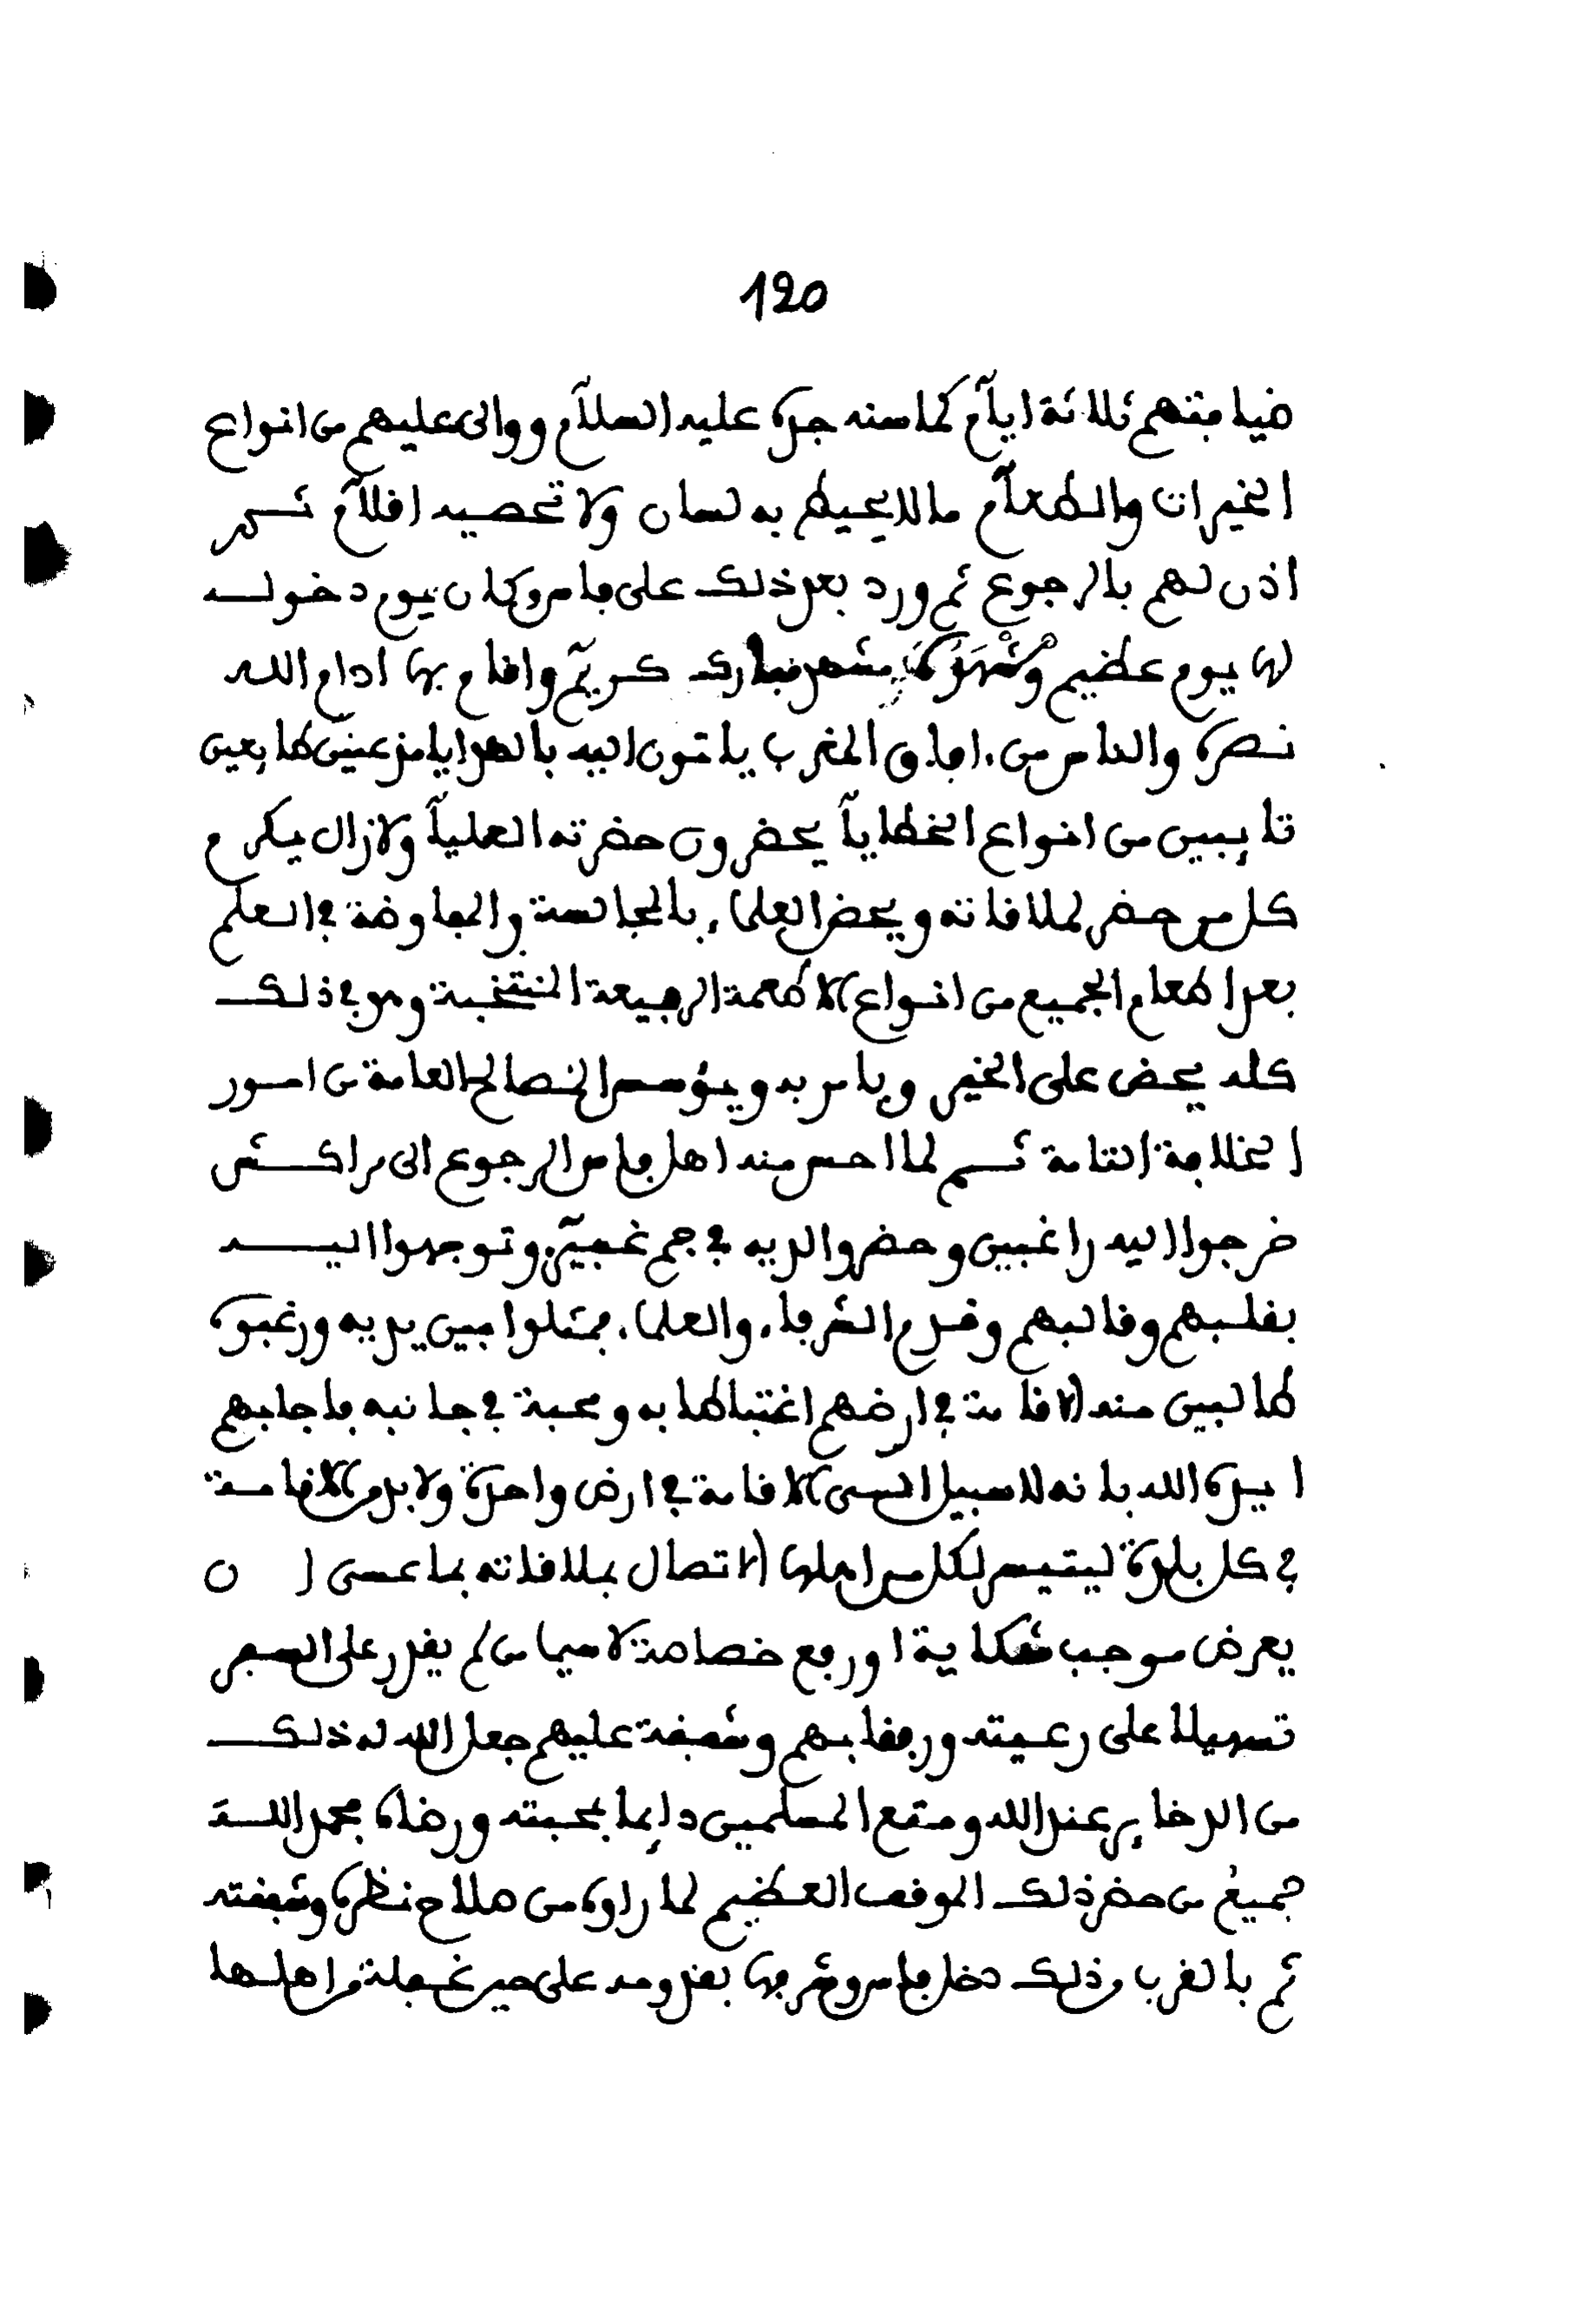 120
ضيافتهم ثلاثة ايام كما سنه جده عليه السلام ووالى عليهم من انواع
الخيرات والطعام ما لا يحيط به لسان ولا تحصيه اقلام ثم
اذن لهم بالرجوع ثم ورد بعد ذلك على فاس وكان يوم دخوله
لها يوم عظيم ومشهر مبارك كريم واقام بها ادام الله
نصره والناس من افاق المغرب ياتون اليه بالهدايا مذعنين طايعين
تايبين من انواع الخطايا يحضرون حضرته العليا ولازال يكرم
كل من حضر لملاقاته ويحض العلماء بالمجالسة والمفاوضة في العلم
بعد اطعام الجميع من انواع الاطعمة الرفيعة المنتخبة وهو في ذلك
كله يحض على الخير ويامر به ويؤسس المصالح العامة من امور
الخلافة التامة ثم لما احس منه اهل فاس الرجوع الى مراكش
خرجوا اليه راغبين وحضروا لديه في جم غفير وتوجهوا اليه
بقلبهم وقالبهم وقدم الشرفاء والعلماء فمثلوا بين يديه ورغبوه
طالبين منه الاقامة في ارضهم اغتباطا به ومحبة في جانبه فاجابهم
ايده الله بانه لا سبيل الى الاقامة في ارض واحدة ولا بد من الاقامة
في كل بلدة ليتيسر لكل من اهلها الاتصال بملاقاته بما عسى ان
يعرض موجب شكاية او رفع خصاصة لا سيما من لم يقدر على السفر
تسهيلا على رعيته ورفقا بهم وشفقة عليهم جعل الله له ذلك
من الدخاير عند الله ومتع المسلمين دايما بمحبته ورضاه فحمد الله
جميع من حضر ذلك الموقف العظيم لما راوه من صلاح نظره وشفقته
ثم بالقرب من ذلك دخل فاس وشرفها بقدومه على حين غفلة من اهلها